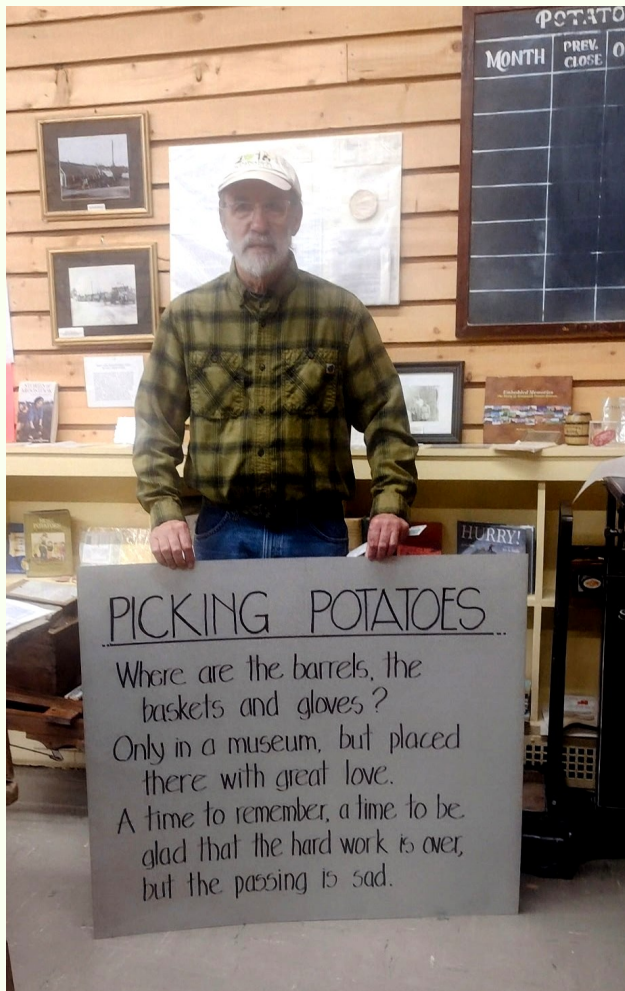 POTATO
MONTH
PREV. CLOSE
HURRY!
PICKING POTATOES
Where are the barrels, the
baskets and gloves?
Only in a museum, but placed
there with great love.
A time to remember, a time to be
glad that the hard work is over,
but the passing is sad.